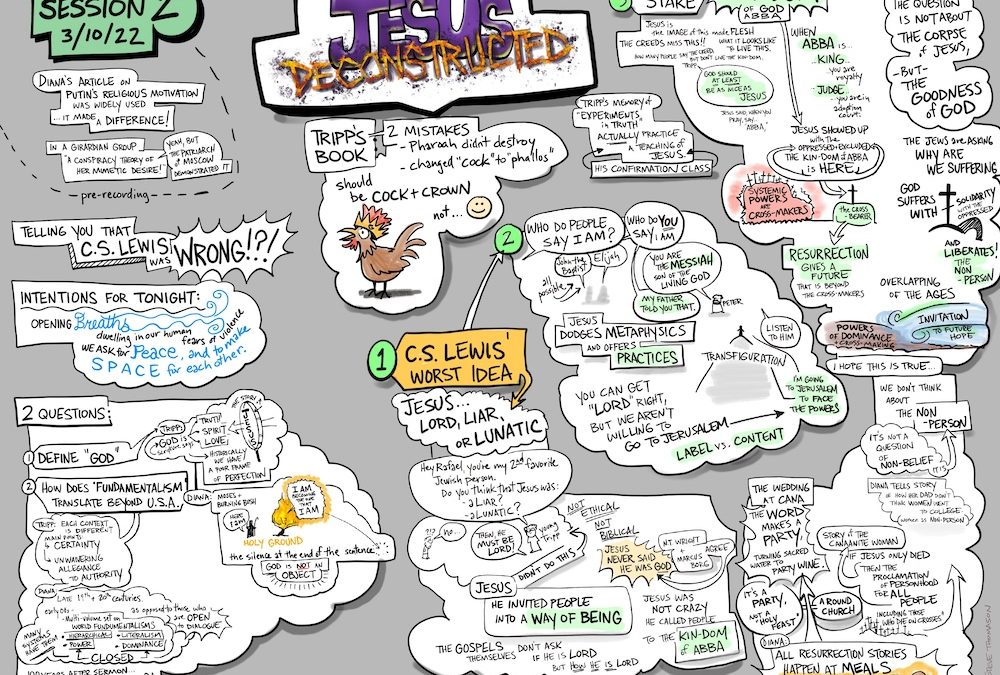 SESSION 2
3/10/22
JESUS
DECONSTRUCTED
DIANA'S ARTICLE ON
PUTIN'S RELIGIOUS MOTIVATION
WAS WIDELY USED
...IT MADE A DIFFERENCE!
IN A GIRARDIAN GROUP
"A CONSPIRACY THEORY OF
HER MIMETIC DESIRE!
YEAH, BUT
THE PATRIARCH
OF MOSCOW
DEMONSTRATED IT
-pre-recording-
TELLING YOU THAT
C.S. LEWIS
WAS
WRONG!?!
INTENTIONS FOR TONIGHT:
OPENING Breaths
dwelling in our human
fears of violence
WE ASK for Peace, and to make
SPACE for each other.
2 QUESTIONS:
1 DEFINE "GOD"
TRIPP:
GOD is
TRUTH
SPIRIT
LOVE
HISTORICALLY
WE HAVE
A YOUR FRAME
OF PERFECTION
2 HOW DOES "FUNDAMENTALISM"
TRANSLATE BEYOND U.S.A.
TRIPP: EACH CONTEXT
IS DIFFERENT
MAIN POINTS
CERTAINTY
UNWAVERING
ALLEGIANCE
TO AUTHORITY
DIANA:
MOSES +
BURNING BUSH
I AM
BECOMING
THE WAY
THAT
I AM
HOLY GROUND
the silence at the end of the sentence
GOD IS NOT AN
OBJECT
DIANA: LATE 19TH + 20TH centuries
early 90s
- Multi-volume set on
WORLD FUNDAMENTALISMS
as opposed to those who
are OPEN
TO DIALOGUE
MANY
SYSTEMS
HAVE THEM
• HIERARCHICAL
• POWER
• LITERALISM
• DOMINANCE
CLOSED
100 YEARS AFTER SERMON...
TRIPP'S
BOOK
2 MISTAKES
- Pharoah didn't destroy
- changed "cock" to "phallos"
should
be COCK + CROWN
not...
TRIPP'S MEMORY of
"EXPERIMENTS
in TRUTH"
ACTUALLY PRACTICE
A TEACHING OF
JESUS.
HIS CONFIRMATION CLASS
1 C.S. LEWIS'
WORST IDEA
JESUS...
LORD, LIAR,
OR LUNATIC
Hey Rafael, you're my 2nd favorite
Jewish person.
Do you think that Jesus was:
-a LIAR?
-a LUNATIC?
no...
THEN, HE
MUST BE
LORD!
young
Tripp
JESUS
DIDN'T DO THIS
NOT
ETHICAL
NOT
BIBLICAL
JESUS
NEVER SAID
HE WAS GOD
N.T. WRIGHT
+
MARCUS
BORG
AGREE
HE INVITED PEOPLE
INTO A WAY OF BEING
JESUS WAS
NOT CRAZY
HE CALLED PEOPLE
TO the KIN-DOM
of ABBA
THE GOSPELS DON'T ASK
THEMSELVES IF HE IS LORD
BUT HOW HE IS LORD
2 WHO DO PEOPLE
SAY I AM?
John the
Baptist
Elijah
all
possible
WHO DO YOU
SAY I AM
YOU ARE
the MESSIAH
SON OF the
LIVING GOD
MY FATHER
TOLD YOU THAT.
PETER
JESUS
DODGES METAPHYSICS
AND OFFERS
PRACTICES
TRANSFIGURATION
LISTEN
TO HIM
YOU CAN GET
"LORD" RIGHT,
BUT WE AREN'T
WILLING TO
GO TO JERUSALEM
I'M GOING
to JERUSALEM
TO FACE
THE POWERS
LABEL vs. CONTENT
3 STAKE
JESUS IS
the IMAGE of this made FLESH
THE CREEDS MISS THIS!!
WHAT IT LOOKS LIKE
to LIVE THIS.
HOW MANY PEOPLE SAY THE CREED
BUT DON'T LIVE THE KIN-DOM.
TRIPP:
GOD SHOULD
AT LEAST
BE AS NICE AS
JESUS
JESUS SAID, WHEN YOU
PRAY, SAY...
"ABBA,"
OF GOD
ABBA
WHEN
ABBA IS...
...KING...
you are
royalty
...JUDGE...
you are in
adoption
court.
JESUS SHOWED UP
with the
OPPRESSED + EXCLUDED
THE KIN-DOM of ABBA
is HERE,
SYSTEMIC
POWERS
ARE
CROSS-MAKERS
the CROSS
-BEARER
RESURRECTION
GIVES A
FUTURE
THAT IS BEYOND
THE CROSS-MAKERS
THE QUESTION
IS NOT ABOUT
THE CORPSE
of JESUS,
-BUT-
THE
GOODNESS
of GOD
THE JEWS are ASKING
WHY ARE
WE SUFFERING
GOD
SUFFERS
WITH
SOLIDARITY
WITH THE
OPPRESSED
AND
LIBERATES!
THE
NON
-PERSON
OVERLAPPING
OF THE AGES
POWERS
OF DOMINANCE
+ CROSS-MAKING
INVITATION
TO FUTURE
HOPE
I HOPE THIS IS TRUE...
WE DON'T THINK
ABOUT
THE NON
-PERSON
IT'S NOT A
QUESTION
OF
NON-BELIEF
IT IS
DIANA TELLS STORY
OF HOW HER DAD DIDN'T
THINK WOMEN WENT
TO COLLEGE
WOMEN as NON-PERSON
THE WEDDING
AT CANA
THE WORD
MAKES A
PARTY,
TURNING SACRED
WATER TO PARTY WINE.
IT'S A
PARTY,
NOT A
HOLY
FEAST
AROUND
CHURCH
STORY of the
CANAANITE WOMAN
IF JESUS ONLY DIED
THEN THE
PROCLAMATION
OF PERSONHOOD
FOR ALL
PEOPLE
INCLUDING THOSE
WHO DIE ON CROSSES
DIANA:
ALL RESURRECTION STORIES
HAPPEN AT MEALS
STEVE THOMASON